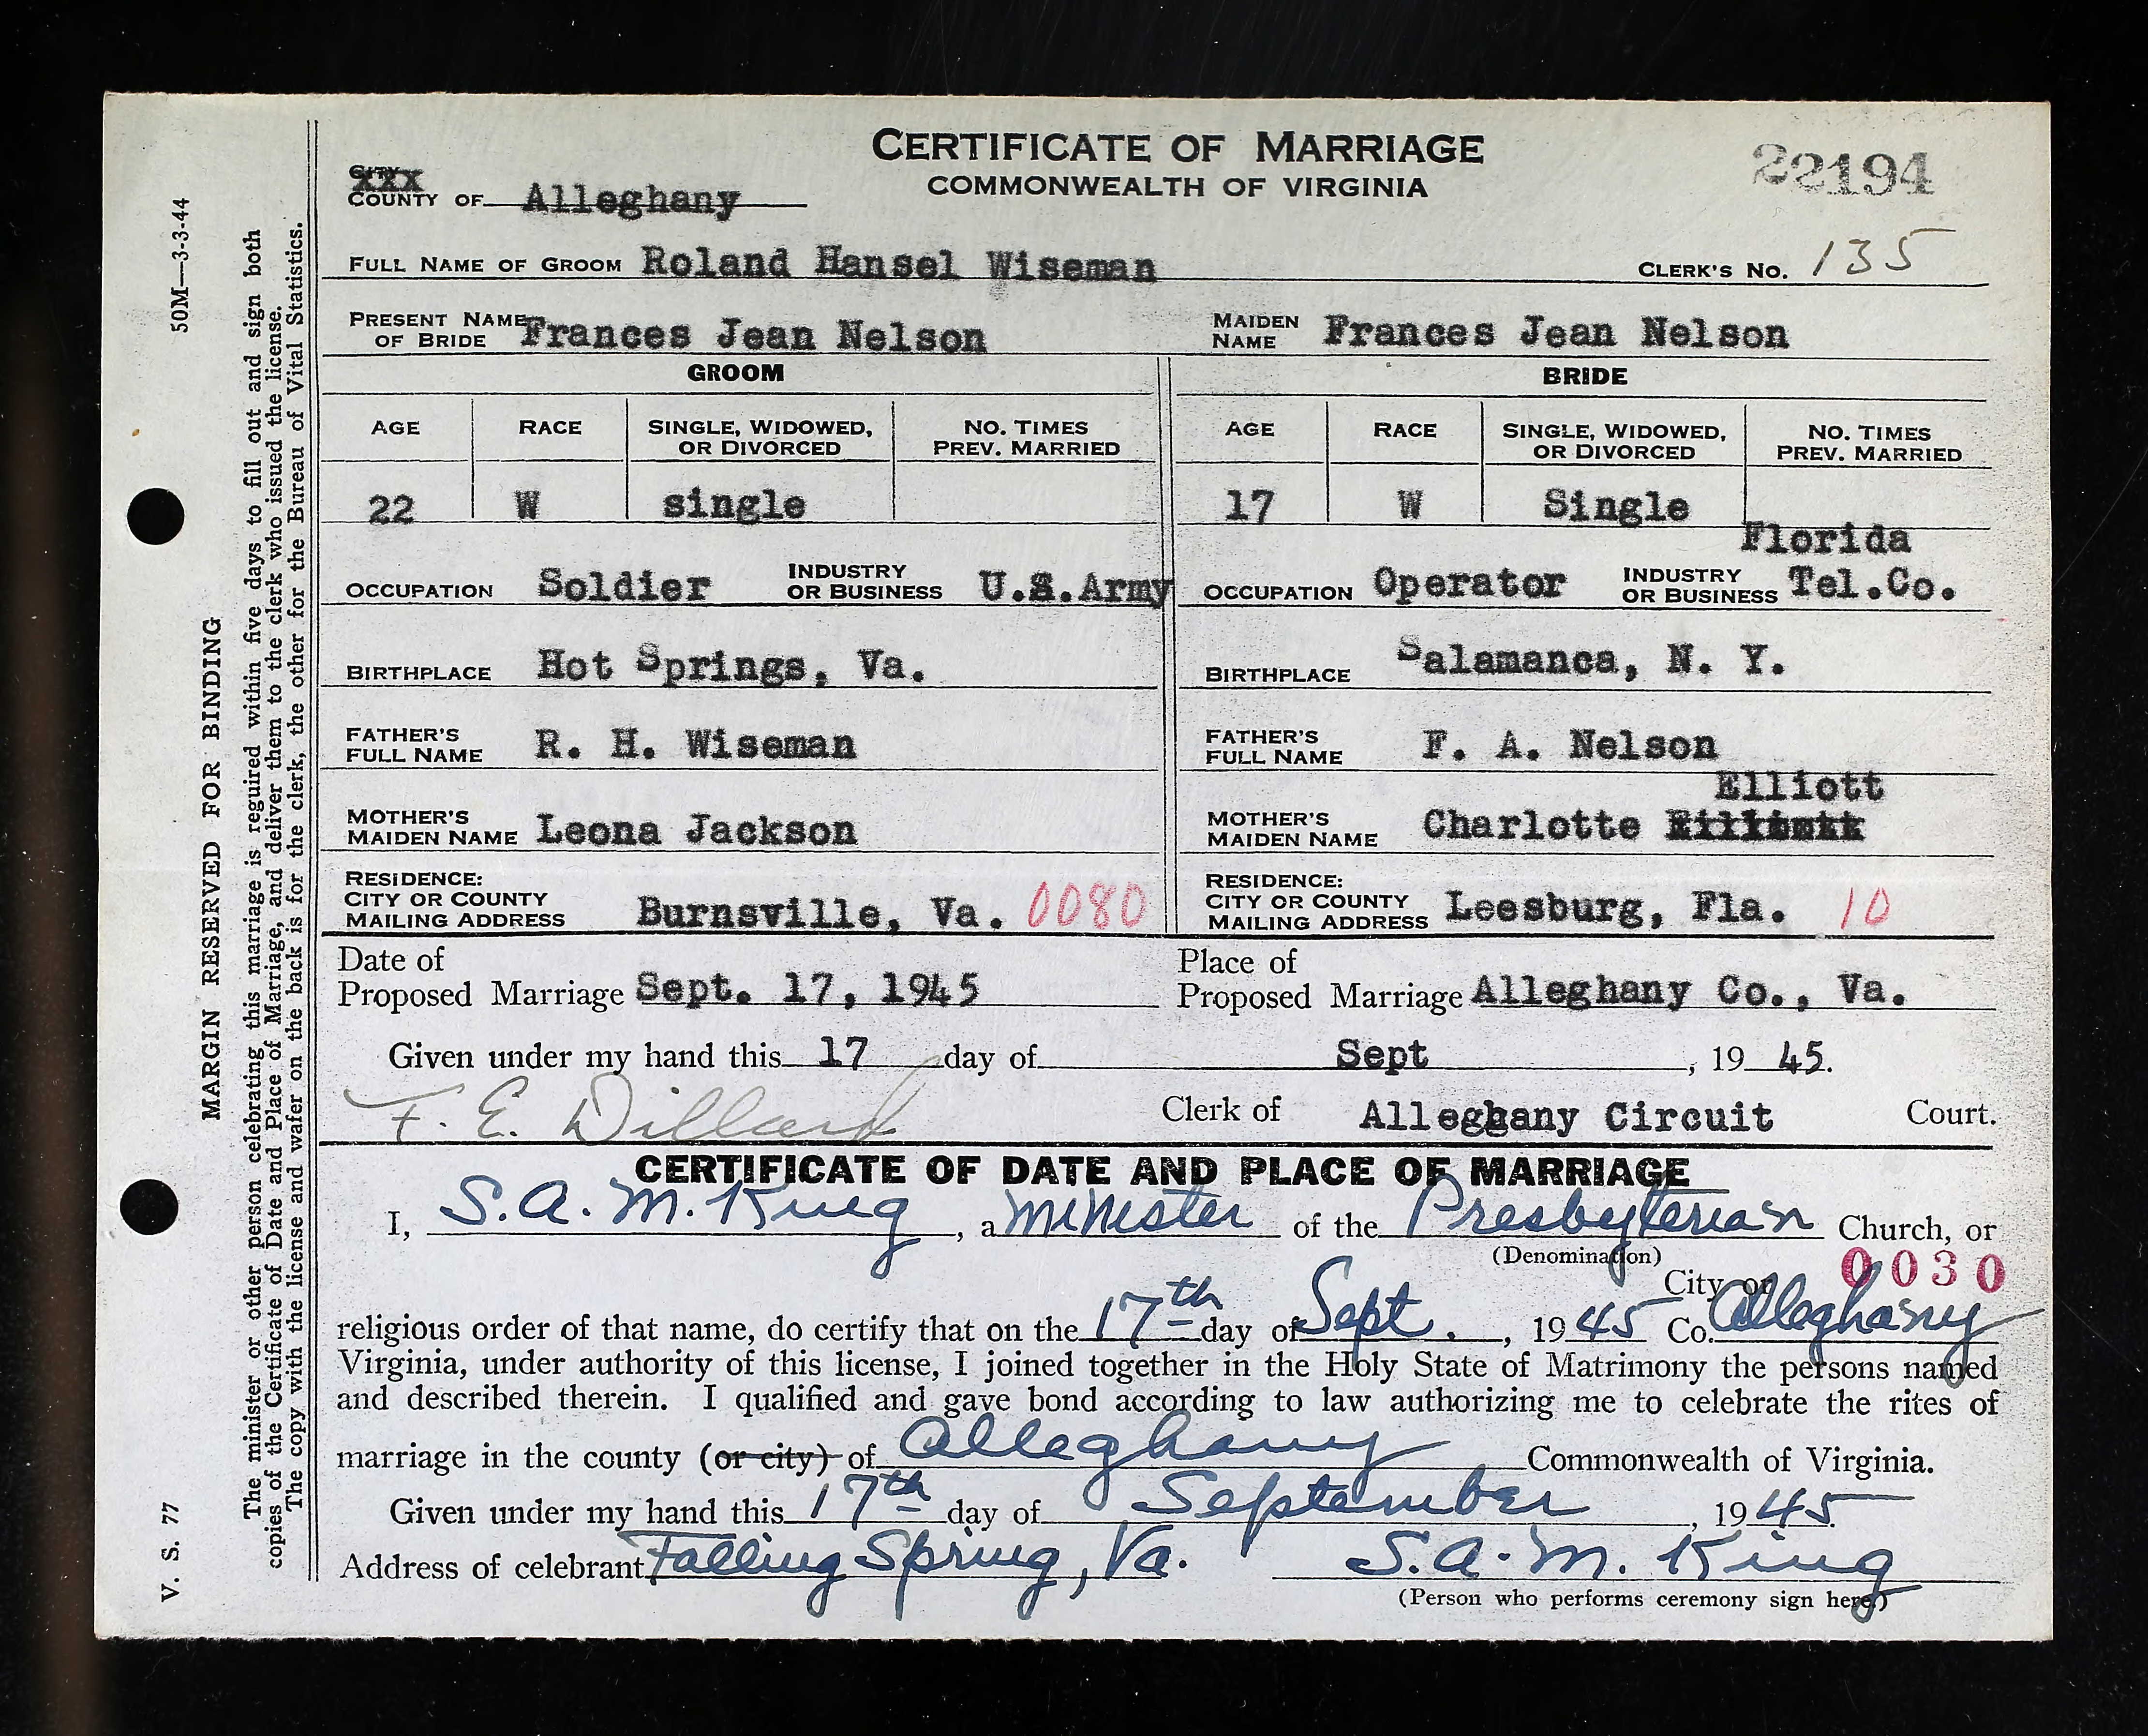 CERTIFICATE OF MARRIAGE
COMMONWEALTH OF VIRGINIA
22194
CITY XXX
COUNTY OF Alleghany
FULL NAME OF GROOM Roland Hansel Wiseman CLERK'S NO. 135
PRESENT NAME OF BRIDE Frances Jean Nelson MAIDEN NAME Frances Jean Nelson
GROOM BRIDE
AGE RACE SINGLE, WIDOWED, OR DIVORCED NO. TIMES PREV. MARRIED AGE RACE SINGLE, WIDOWED, OR DIVORCED NO. TIMES PREV. MARRIED
22 W single 17 W Single
OCCUPATION Soldier INDUSTRY OR BUSINESS U.S.Army OCCUPATION Operator INDUSTRY OR BUSINESS Florida Tel.Co.
BIRTHPLACE Hot Springs, Va. BIRTHPLACE Salamanca, N. Y.
FATHER'S FULL NAME R. H. Wiseman FATHER'S FULL NAME F. A. Nelson
MOTHER'S MAIDEN NAME Leona Jackson MOTHER'S MAIDEN NAME Charlotte Elliott
RESIDENCE: CITY OR COUNTY MAILING ADDRESS Burnsville, Va. 0080 RESIDENCE: CITY OR COUNTY MAILING ADDRESS Leesburg, Fla. 10
Date of Proposed Marriage Sept. 17, 1945 Place of Proposed Marriage Alleghany Co., Va.
Given under my hand this 17 day of Sept, 19 45.
F. E. Dillard Clerk of Alleghany Circuit Court.
CERTIFICATE OF DATE AND PLACE OF MARRIAGE
I, S. A. M. King, a minister of the Presbyterian Church, or
(Denomination)
City or 0030
religious order of that name, do certify that on the 17th day of Sept., 19 45 Co. Alleghany
Virginia, under authority of this license, I joined together in the Holy State of Matrimony the persons named
and described therein. I qualified and gave bond according to law authorizing me to celebrate the rites of
marriage in the county (or city) of Alleghany Commonwealth of Virginia.
Given under my hand this 17th day of September, 19 45
Address of celebrant Falling Spring, Va. S. A. M. King
(Person who performs ceremony sign here.)
V. S. 77
MARGIN RESERVED FOR BINDING
50M—3-3-44
The minister or other person celebrating this marriage is required within five days to fill out and sign both
copies of the Certificate of Date and Place of Marriage, and deliver them to the clerk who issued the license.
The copy with the license and wafer on the back is for the clerk, the other for the Bureau of Vital Statistics.